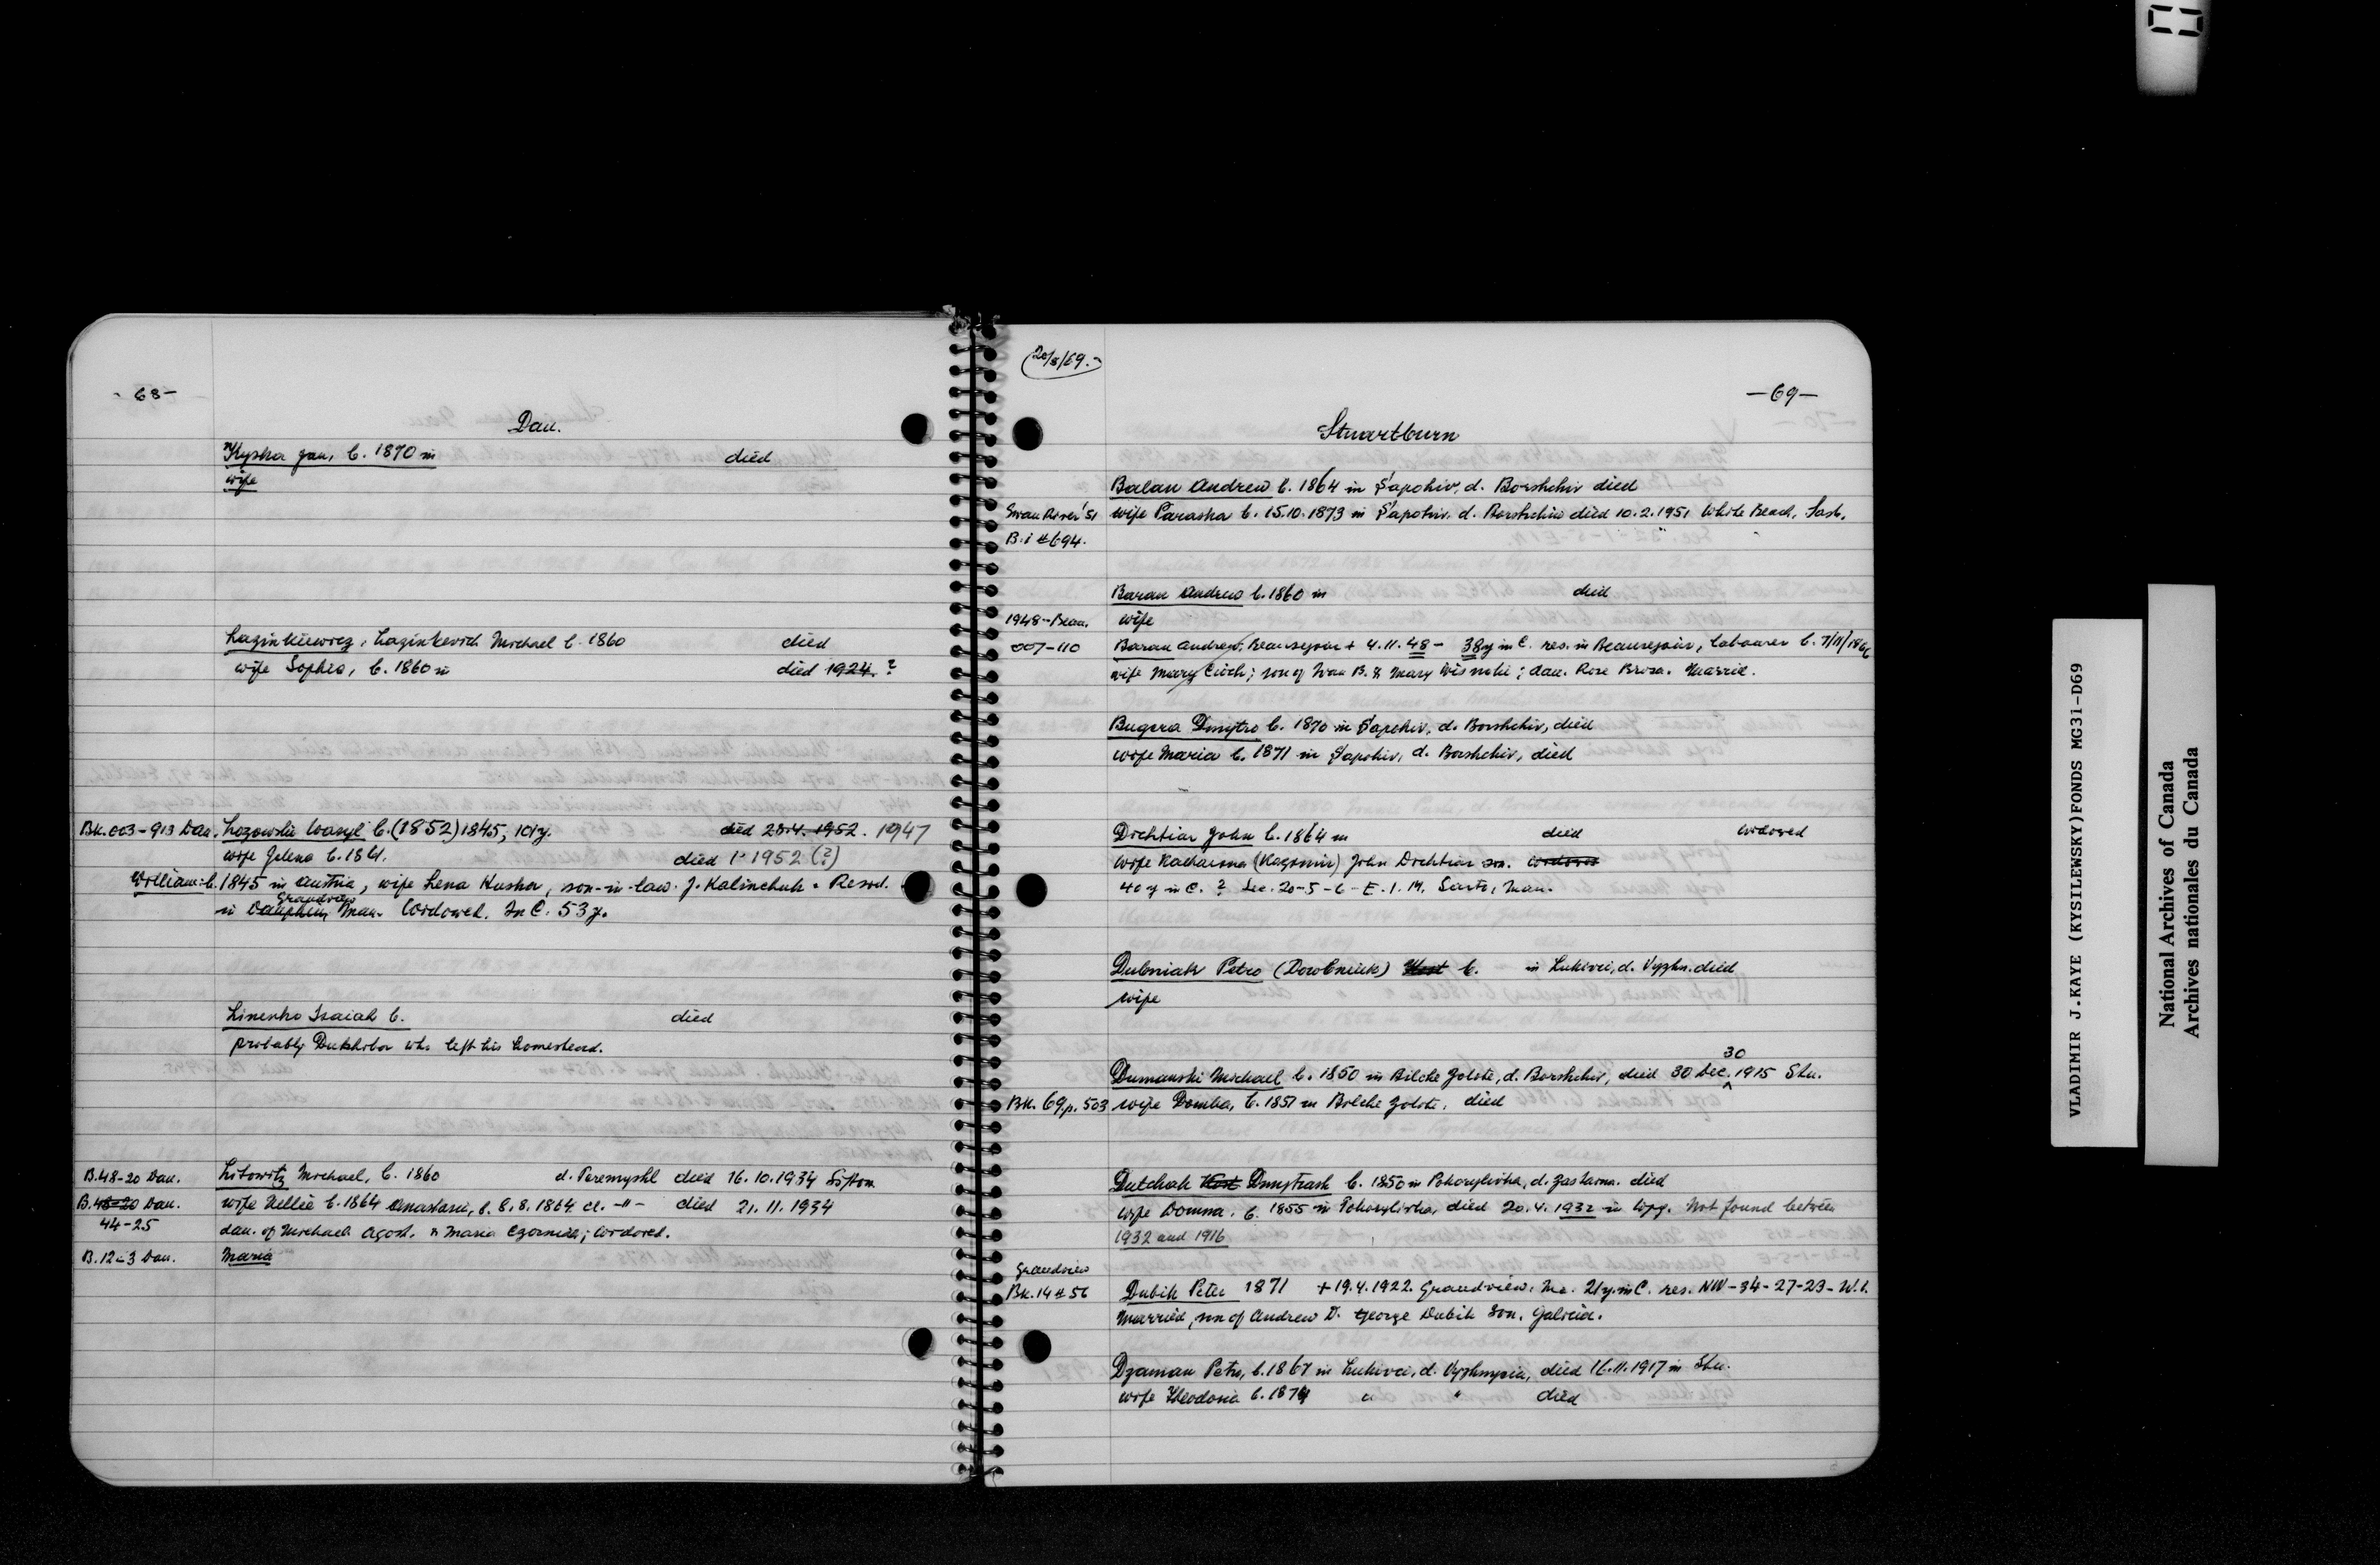 - 68-
Dau.
Kyska Jan, b. 1870 in died
wife
Lazinkiewicz, Lazinkevich Michael b. 1860 died
wife Sophia, b. 1860 in died 1924. ?
Bk. 003-913 Dau. Lozowski Wasyl b. (1852) 1845, 101y. died 28.4.1952. 1947
wife Jelena b. 1861. died 1952 (?)
William: b. 1845 in Austria, wife Lena Kusha, son-in-law J. Kalinchuk. Resid.
Grandview
in Dauphin, Man. Widowed. In C. 53 y.
Linenko Isaiah b. died
probably Dukhobor who left his homestead.
B.48-20 Dau. Litowitz Michael, b. 1860 d. Peremyshl died 16.10.1934 Sifton
B.48-20 Dau. wife Nellie b. 1864 Anastasia, b. 8.8.1864 -"- died 21.11.1934
44-25 dau. of Michael Agost. & Maria Czorniak; widowed.
B.12-3 Dau. Maria
(20/8/69.)
-69-
Stuartburn
Balan Andrew b. 1864 in Sapohiv, d. Borshchiv died
Swan River '51 wife Paraska b. 15.10.1873 in Sapohiv, d. Borshchiv died 10.2.1951 White Beach, Sask.
B.i #694.
Baran Andrew b. 1860 in died
1948-Beau. wife
007-110 Baran Andrew, Beausejour + 4.11.48 - 38y in C. res. in Beausejour, labourer b. 7/11/1866
wife Mary Cioch; son of Iwan B. & Mary Wisnski; dau. Rose Broza. Married.
Bugera Dmytro b. 1870 in Sapohiv, d. Borshchiv, died
wife Maria b. 1871 in Sapohiv, d. Borshchiv, died
Dichtiar John b. 1864 in died widowed
wife Katharina (Kazimir) John Dichtiar son. widowed
40 y in C. ? Sec. 20-5-6-E.1.M. Sarto, Man.
Dubniak Petro (Dowbniuk) b. in Lukivci, d. Vyzhn. died
wife
30
Dumanski Michael b. 1850 in Bilche Zolote, d. Borshchiv, died 30 Dec. 1915 Stu.
Bk. 69, p. 503 wife Domka, b. 1851 in Bilche Zolote, died
Dutchak Kost Dmytrash b. 1850 in Pohorylivka, d. Zastavna. died
wife Domna, b. 1855 in Pohorylivka, died 20.4.1932 in Wpg. Not found between
1932 and 1916
Grandview
Bk. 14 #56 Dubik Peter 1871 +19.4.1922 Grandview, Ma. 21y. in C. res. NW-34-27-23-W.1.
Married, son of Andrew D. George Dubik son. Galicia.
Dzaman Petro, b. 1867 in Lukivci, d. Vyzhnycia, died 16.11.1917 in Stu.
wife Theodosia b. 1874 " " died
VLADIMIR J.KAYE (KYSILEWSKY)FONDS MG31-D69
National Archives of Canada
Archives nationales du Canada